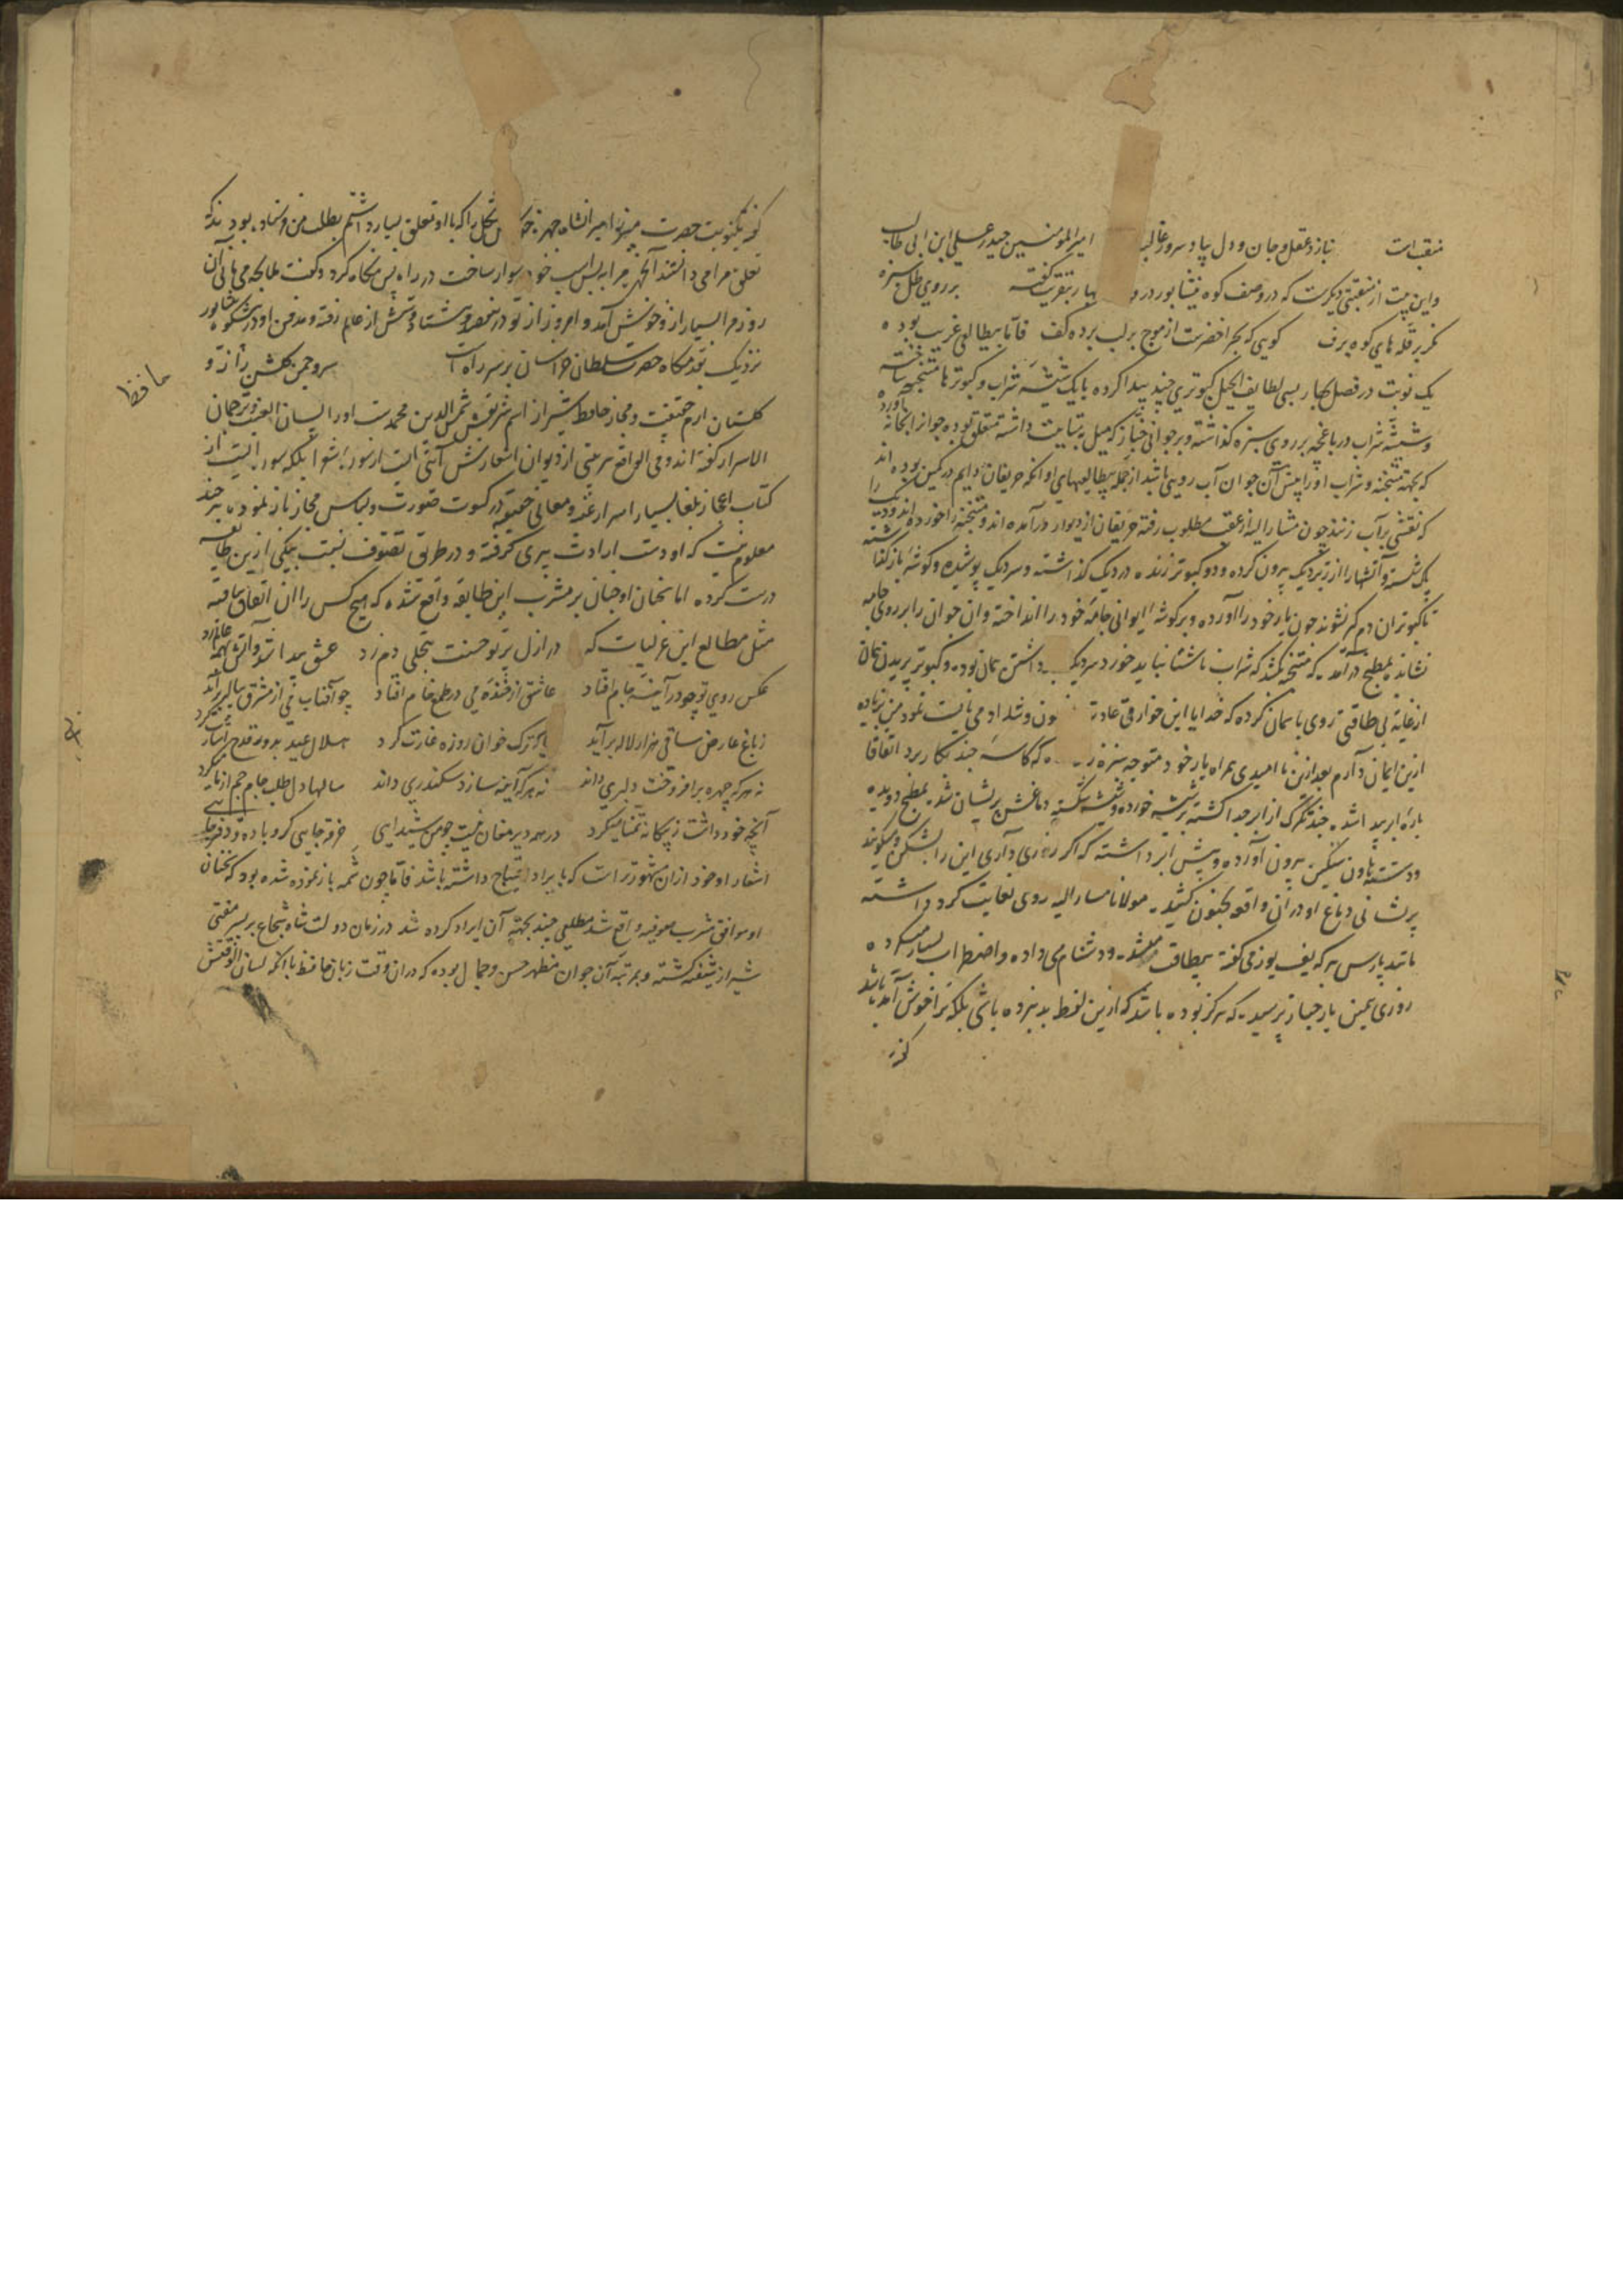 منقبت است نیازد عقل و جان و دل بپا و سرور غالب امیر المومنین حیدر علی ابن ابی طالب
و این بیت از منقبتی دیگرست که در وصف کوه نیشابور در و بهار بتقریب گفته بر روی طل سبزه
نگر بر قله های کوه برف گویی که بحر اخضرست از موج بر لب برده کف فاما بیطالعی غریب بوده
یک نوبت در فصل بهار بسی لطایف الحیل کبوتری چند پیدا کرده با یک شیشه شراب و کبوترها متنجنه ساخته
و شیشه شراب در باغچه بر روی سبزه گذاشته و بر جوانی خباز که میل بتمامت داشته متعلق بوده جوانرا بخانه آورده
که بجهته متنجنه و شراب او را پیش آن جوان آب رویی باشد از جمله بیطالعیهای او آنکه حریفان دایم در کمین بوده اند
که نقشی بر آب زنند چون مشار الیه از عقب مطلوب رفته حریفان از دیوار در آمده اند و متنجنه را خورده اند و دیک را
پاک شسته و آتش را از زیر دیک بیرون کرده و دو کبوتر زنده در دیک گذاشته و سر دیک پوشیده و گوشه باز گذاشته
تا کبوتران دم گیر نشوند چون یار خود را آورده و بر گوشه ایوانی جامه خود را انداخته و آن جوان را بر روی جامه
نشانده بمطبخ در آمد که متنجنه بکشد که شراب ناشتا نباید خورد سر دیک داشتن همان بود و کبوتر پریدن همان
از غایه بی طاقتی روی بآسمان کرده که خدایا این خوارق عادت ون و شداد می بایست نمود من بنده
ازین ایمان دارم بعد ازین نا امیدی همراه یار خود متوجه سبزه که کاسه چند بکار برد اتفاقا
پاره ابر پیدا شد چند تگرگ از ابر جدا گشته بر شیشه خورده و شیشه شکسته دماغش پریشان شد بمطبخ دویده
و دسته هاون سنگین بیرون آورده و پیش ابر داشته که اگر زوری داری این را بشکن و میگویند
پریشانی دماغ او در آن واقعه بجنون کشید مولانا مشار الیه روی بغایت گرد داشته
مانند پارس هر که یف یوز می گفته بیطاقت میشد و دشنام می داده و اضطراب بسیار میکرده
روزی همین یار خباز پرسید که هرگز بوده باشد که ازین لفظ بد نبرده باشی بلکه ترا خوش آمده باشد
گفت
گفت یکنوبت حضرت میرزا امیرانشاه جهته را که با او تعلق بسیار داشتم بطلب من فرستاده بود چندانکه
تعلق مرا می دانستند آنگهی مرا بر پس اسب خود سوار ساخت در راه پس نگاه کرد و گفت
روز مرا بسیار از و خوش آمد و امروز از تو در نهصد و هشتاد و شش از عالم رفته و مدفن او در نیشابور
نزدیک بقدمگاه حضرت سلطان خراسان بر سر راه است سرو چمن گلشن راز و
حافظ
گلستان ارم حقیقت و مجاز حافظ شیراز اسم شریفش شمس الدین محمدست او را لسان الغیب و ترجمان
الاسرار گفته اند و فی الواقع هر بیتی از دیوان اشعارش آیتی است از سوره شعرا بلکه سوره ایست از
کتاب اعجاز بلغا بسیار اسرار غیبیه و معانی حقیقیه در کسوت صورت و لباس مجاز باز نموده هر چند
معلوم نیست که او دست ارادت پیری گرفته و در طریق تصوف نسبت بیکی ازین طایفه
درست کرده اما سخنان او چنان بر مشرب این طایفه واقع شده که هیچ کس را آن اتفاق نیافته
مثل مطالع این غزلیات که در ازل پرتو حسنت ز تجلی دم زد عشق پیدا شد و آتش بهمه عالم زد
عکس روی تو چو در آینه جام افتاد عاشق از خنده می در طمع خام افتاد چو آفتاب می از مشرق پیاله برآید
ز باغ عارض ساقی هزار لاله برآید بیا که ترک خوان روزه غارت کرد هلال عید بدور قدح اشارت کرد
نه هر که چهره بر افروخت دلبری داند نه هر که آینه سازد سکندری داند سالها دل طلب جام جم از ما میکرد
آنچه خود داشت ز بیگانه تمنا میکرد در همه دیر مغان نیست چو من شیدایی خرقه جایی گرو باده و دفتر جایی
اشعار او خود از آن مشهورتر است که بایراد احتیاج داشته باشد فاما چون شمه باز نموده شده بود که سخنان
او موافق مشرب صوفیه واقع شد مطلعی چند بجهته آن ایراد کرده شد در زمان دولت شاه شجاع بر پسر مفتی
شیراز شیفته گشته و بمرتبه آن جوان مظهر حسن و جمال بوده که در آن وقت زبان حافظ با آنکه لسان الوقتش